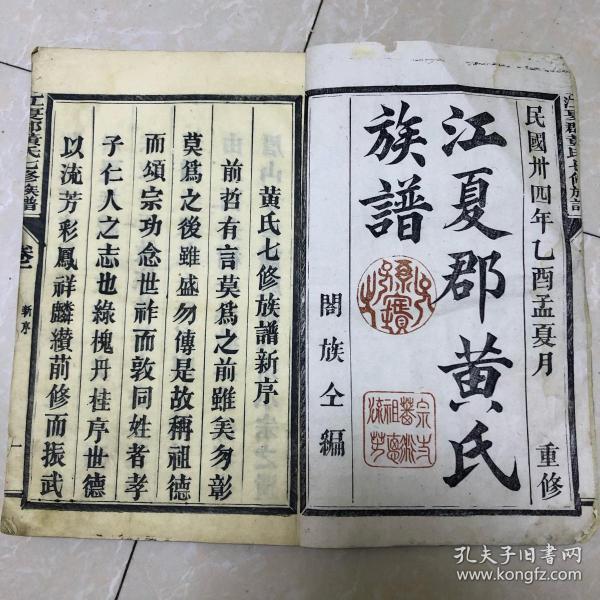 民國卅四年乙酉孟夏月
重修
江夏郡黄氏
族譜
閤族仝編
江夏郡黄氏七修族譜
黃氏七修族譜新序
前哲有言莫爲之前雖美勿彰
莫爲之後雖盛勿傳是故稱祖德
而頌宗功念世祚而敦同姓者孝
子仁人之志也綠槐丹桂序世德
以流芳彩鳳祥麟纘前修而振武
江夏郡黃氏七修族譜
卷一
新序
一
孔夫子旧书网
www.kongfz.com